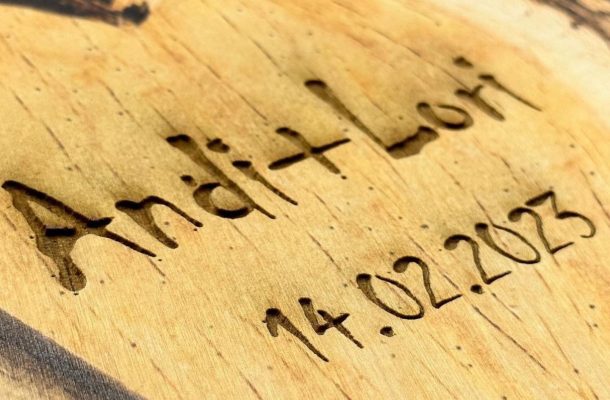 Andi+Lori
14.02.2023